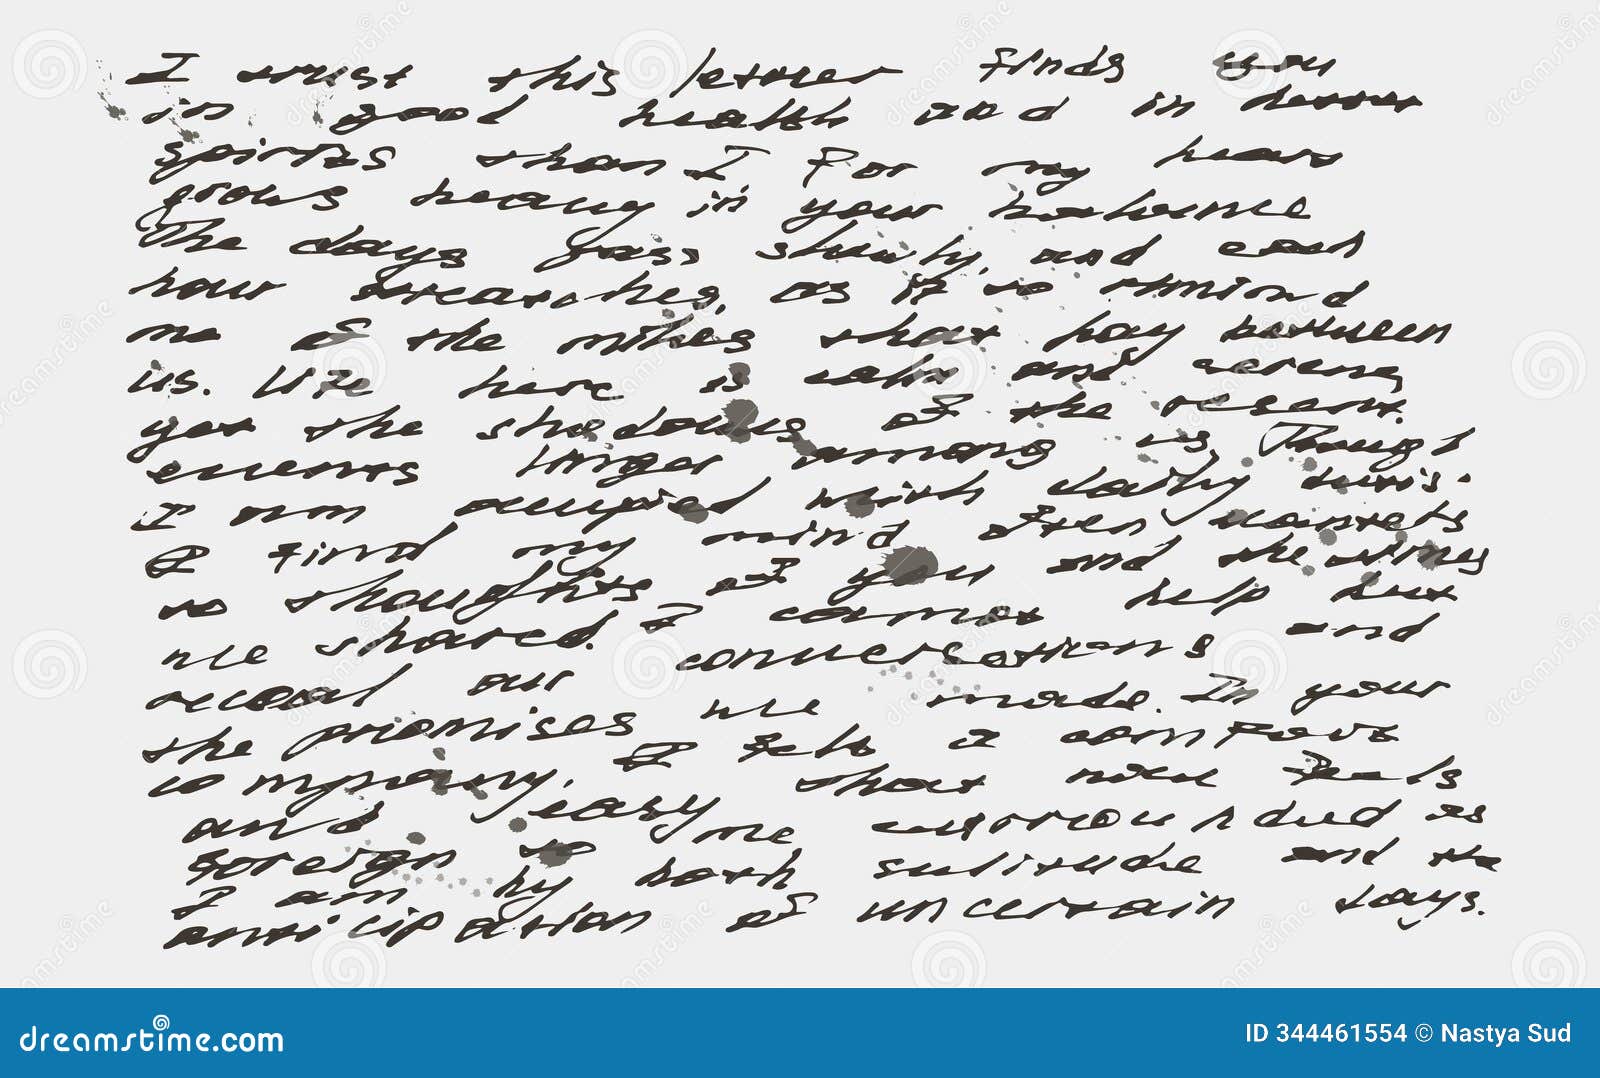 I trust this letter finds you
in good health and in better
spirits than I For my hear
grows heavy in your
The days pass slowly, and each
hour stretches, as if to remind
me of the miles that hay between
us. Life here is calm and serene
yet the shadows of the resent.
events linger among us Though
I am occupied with daily
I find my mind often
to thoughts of you and the times
we shared. I cannot help but
recoal our conversations and
the promises we made. In your
company. I felt a comfort
and easy that now feels
foreign to me surrounded as
I am by both solitude and the
anticipation of uncertain days.
dreamstime.com
ID 344461554 © Nastya Sud